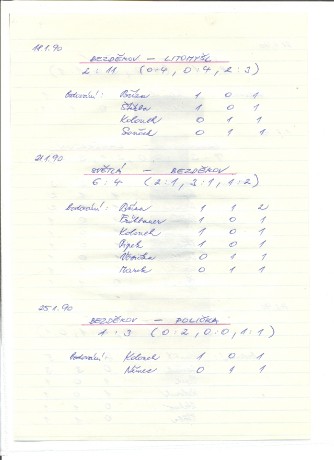 18.1.90
BEZDĚKOV – LITOMYŠL
2 : 11 (0:4, 0:4, 2:3)
Bodování: 1 0 1
1 0 1
Kolouch 0 1 1
0 1 1
21.1.90
SVĚTLÁ – BEZDĚKOV
6 : 4 (2:1, 3:1, 1:2)
Bodování: 1 1 2
1 0 1
Kolouch 1 0 1
1 0 1
0 1 1
Marek 0 1 1
25.1.90
BEZDĚKOV – POLIČKA
1 : 3 (0:2, 0:0, 1:1)
Bodování: Kolouch 1 0 1
Němec 0 1 1